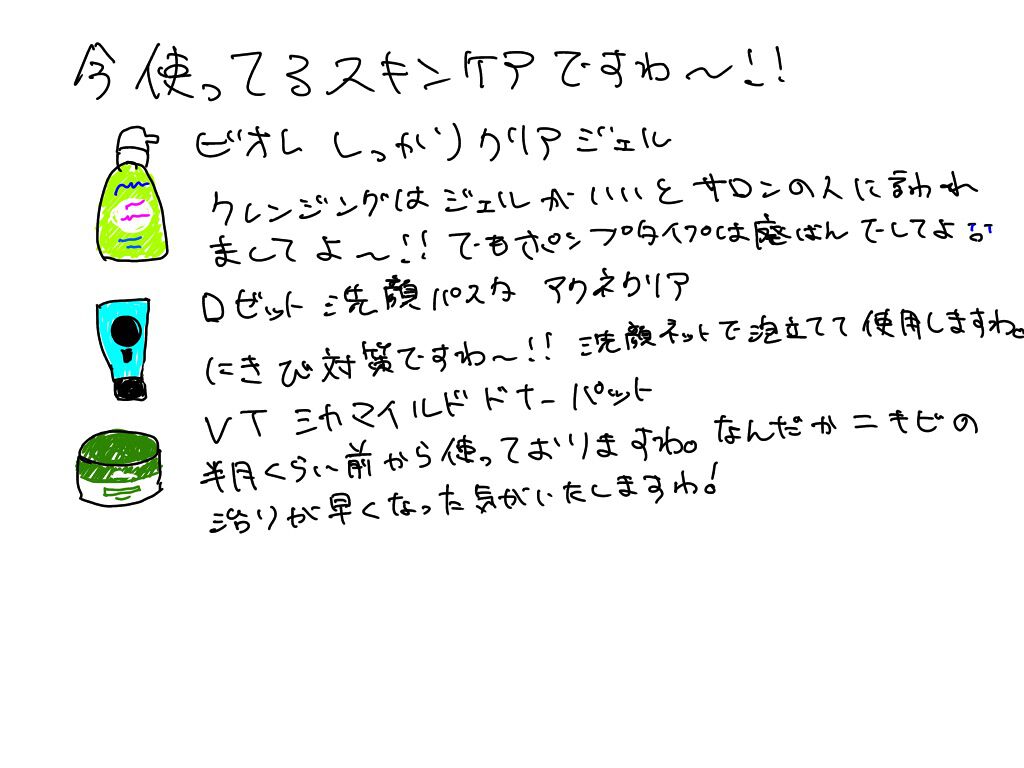 今使ってるスキンケアですわ〜!!
ビオレ しっかりクリアジェル
クレンジングはジェルがいいとサロンの人に言われ
ましてよ〜!! でもポンプタイプは廃ばんでしてよTT
ロゼット洗顔パスタ アクネクリア
にきび対策ですわ〜!! 洗顔ネットで泡立てて使用しますわ。
VT ミカマイルドドナーパット
半月くらい前から使っておりますわ。なんだかニキビの
治りが早くなった気がいたしますわ!